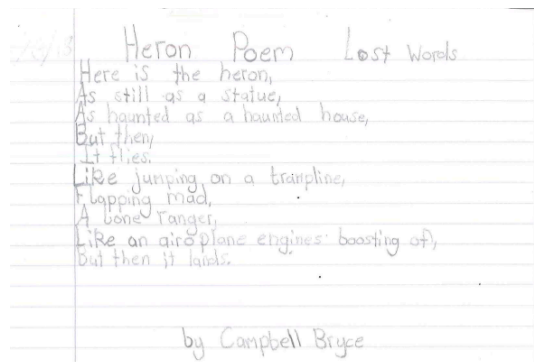 Heron Poem Lost Words
Here is the heron,
As still as a statue,
As haunted as a haunted house,
But then,
It flies.
Like jumping on a trampline,
Flapping mad,
A bone ranger,
Like an airoplane engines boosting of,
But then it lands.
by Campbell Bryce